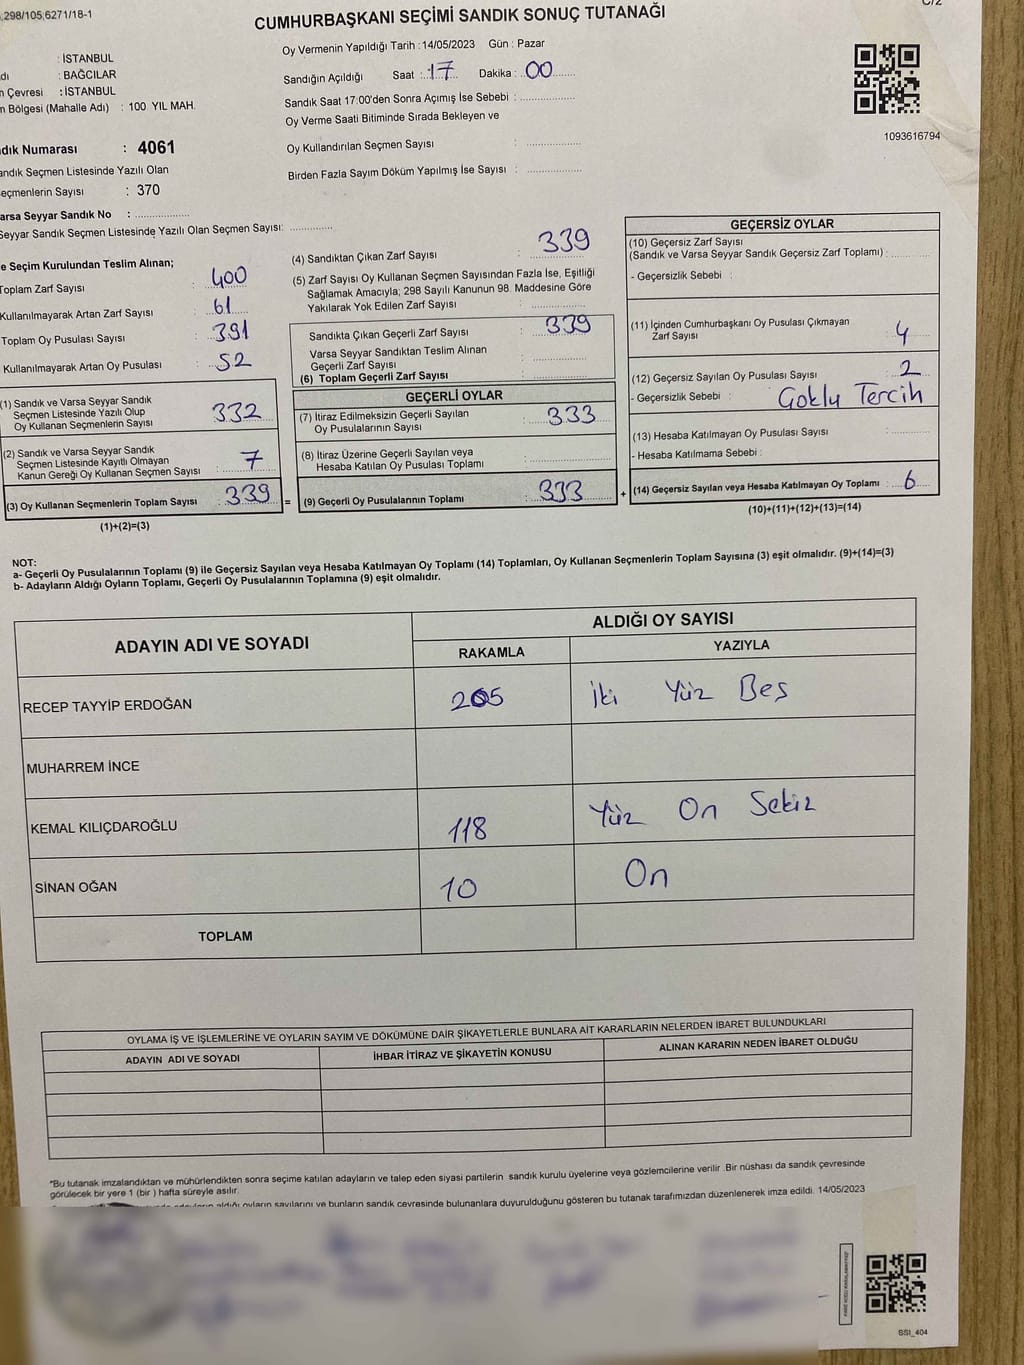 298/105,6271/18-1
C/2
CUMHURBAŞKANI SEÇİMİ SANDIK SONUÇ TUTANAĞI
: İSTANBUL
: BAĞCILAR
Çevresi : İSTANBUL
Bölgesi (Mahalle Adı) : 100 YIL MAH.
Numarası : 4061
Sandık Seçmen Listesinde Yazılı Olan
Seçmenlerin Sayısı : 370
Varsa Seyyar Sandık No : ..................
Seyyar Sandık Seçmen Listesinde Yazılı Olan Seçmen Sayısı: ..............
Oy Vermenin Yapıldığı Tarih : 14/05/2023 Gün : Pazar
Sandığın Açıldığı Saat : 17 Dakika : 00
Sandık Saat 17:00'den Sonra Açımış İse Sebebi : ..................
Oy Verme Saati Bitiminde Sırada Bekleyen ve
Oy Kullandırılan Seçmen Sayısı : ..................
Birden Fazla Sayım Döküm Yapılmış İse Sayısı : ..................
1093616794
Seçim Kurulundan Teslim Alınan;
Toplam Zarf Sayısı : 400
Kullanılmayarak Artan Zarf Sayısı : 61
Toplam Oy Pusulası Sayısı : 391
Kullanılmayarak Artan Oy Pusulası : 52
(1) Sandık ve Varsa Seyyar Sandık
Seçmen Listesinde Yazılı Olup
Oy Kullanan Seçmenlerin Sayısı : 332
(2) Sandık ve Varsa Seyyar Sandık
Seçmen Listesinde Kayıtlı Olmayan
Kanun Gereği Oy Kullanan Seçmen Sayısı : 7
(3) Oy Kullanan Seçmenlerin Toplam Sayısı : 339 =
(1)+(2)=(3)
(4) Sandıktan Çıkan Zarf Sayısı : 339
(5) Zarf Sayısı Oy Kullanan Seçmen Sayısından Fazla İse, Eşitliği
Sağlamak Amacıyla; 298 Sayılı Kanunun 98. Maddesine Göre
Yakılarak Yok Edilen Zarf Sayısı : ..................
Sandıkta Çıkan Geçerli Zarf Sayısı : 339
Varsa Seyyar Sandıktan Teslim Alınan
Geçerli Zarf Sayısı : ..................
(6) Toplam Geçerli Zarf Sayısı : ..................
GEÇERLİ OYLAR
(7) İtiraz Edilmeksizin Geçerli Sayılan
Oy Pusulalarının Sayısı : 333
(8) İtiraz Üzerine Geçerli Sayılan veya
Hesaba Katılan Oy Pusulası Toplamı : ..................
(9) Geçerli Oy Pusulalarının Toplamı : 333 +
GEÇERSİZ OYLAR
(10) Geçersiz Zarf Sayısı
(Sandık ve Varsa Seyyar Sandık Geçersiz Zarf Toplamı) : ............
- Geçersizlik Sebebi :
(11) İçinden Cumhurbaşkanı Oy Pusulası Çıkmayan
Zarf Sayısı : 4
(12) Geçersiz Sayılan Oy Pusulası Sayısı : 2
- Geçersizlik Sebebi : Çoklu Tercih
(13) Hesaba Katılmayan Oy Pusulası Sayısı : ............
- Hesaba Katılmama Sebebi :
(14) Geçersiz Sayılan veya Hesaba Katılmayan Oy Toplamı : 6
(10)+(11)+(12)+(13)=(14)
NOT:
a- Geçerli Oy Pusulalarının Toplamı (9) ile Geçersiz Sayılan veya Hesaba Katılmayan Oy Toplamı (14) Toplamları, Oy Kullanan Seçmenlerin Toplam Sayısına (3) eşit olmalıdır. (9)+(14)=(3)
b- Adayların Aldığı Oyların Toplamı, Geçerli Oy Pusulalarının Toplamına (9) eşit olmalıdır.
ADAYIN ADI VE SOYADI
ALDIĞI OY SAYISI
RAKAMLA YAZIYLA
RECEP TAYYİP ERDOĞAN 205 İki Yüz Beş
MUHARREM İNCE
KEMAL KILIÇDAROĞLU 118 Yüz On Sekiz
SİNAN OĞAN 10 On
TOPLAM
OYLAMA İŞ VE İŞLEMLERİNE VE OYLARIN SAYIM VE DÖKÜMÜNE DAİR ŞİKAYETLERLE BUNLARA AİT KARARLARIN NELERDEN İBARET BULUNDUKLARI
ADAYIN ADI VE SOYADI İHBAR İTİRAZ VE ŞİKAYETİN KONUSU ALINAN KARARIN NEDEN İBARET OLDUĞU
*Bu tutanak imzalandıktan ve mühürlendikten sonra seçime katılan adayların ve talep eden siyasi partilerin sandık kurulu üyelerine veya gözlemcilerine verilir .Bir nüshası da sandık çevresinde
görülecek bir yere 1 (bir ) hafta süreyle asılır.
aldığı oyların sayılarını ve bunların sandık çevresinde bulunanlara duyurulduğunu gösteren bu tutanak tarafımızdan düzenlenerek imza edildi. 14/05/2023
SSI_404